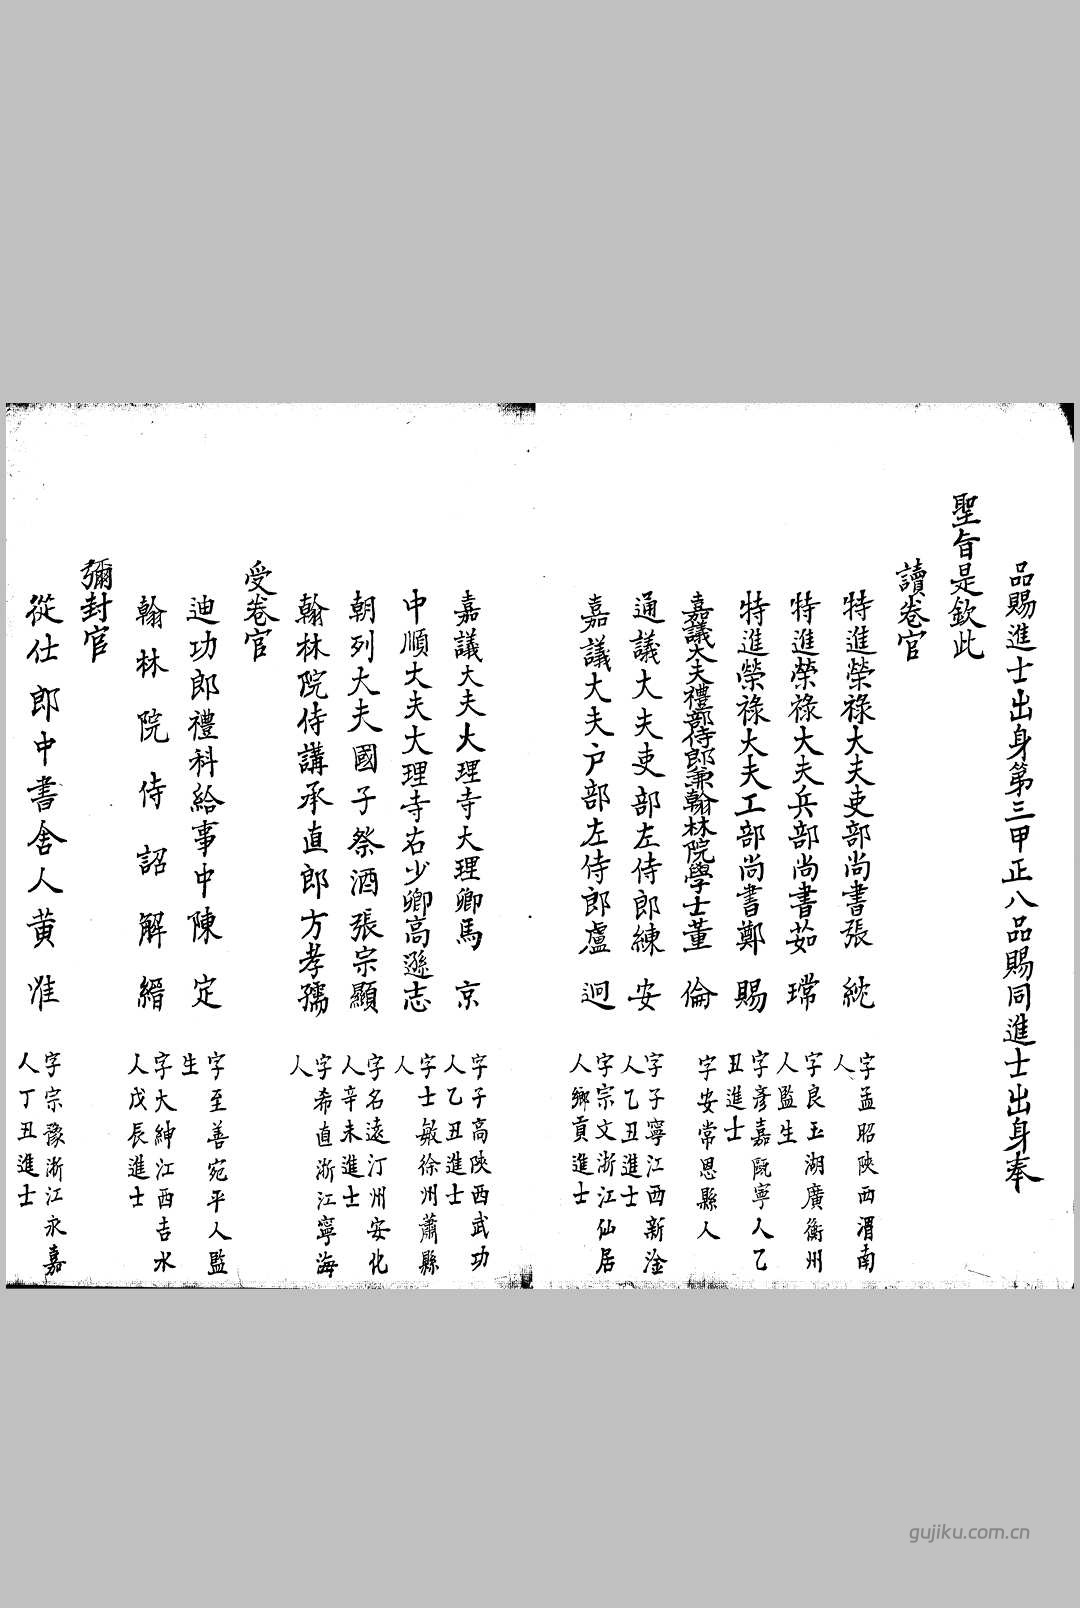 品賜進士出身第三甲正八品賜同進士出身奉
聖旨是欽此
讀卷官
特進榮祿大夫吏部尚書張紞
字孟昭陝西渭南
人
特進榮祿大夫兵部尚書茹瑺
字良玉湖廣衡州
人監生
特進榮祿大夫工部尚書鄭賜
字彥嘉甌寧人乙
丑進士
嘉議大夫禮部侍郎兼翰林院學士董倫
字安常恩縣人
通議大夫吏部左侍郎練安
字子寧江西新淦
人乙丑進士
嘉議大夫户部左侍郎盧迥
字宗文浙江仙居
人鄉貢進士
嘉議大夫大理寺大理卿馬京
字子高陝西武功
人乙丑進士
中順大夫大理寺右少卿高遜志
字士敏徐州蕭縣
人
朝列大夫國子祭酒張宗顯
字名遠汀州安化
人辛未進士
翰林院侍講承直郎方孝孺
字希直浙江寧海
人
受卷官
迪功郎禮科給事中陳定
字至善宛平人監
生
翰林院侍詔解縉
字大紳江西吉水
人戊辰進士
彌封官
從仕郎中書舍人黄淮
字宗豫浙江永嘉
人丁丑進士
gujiku.com.cn